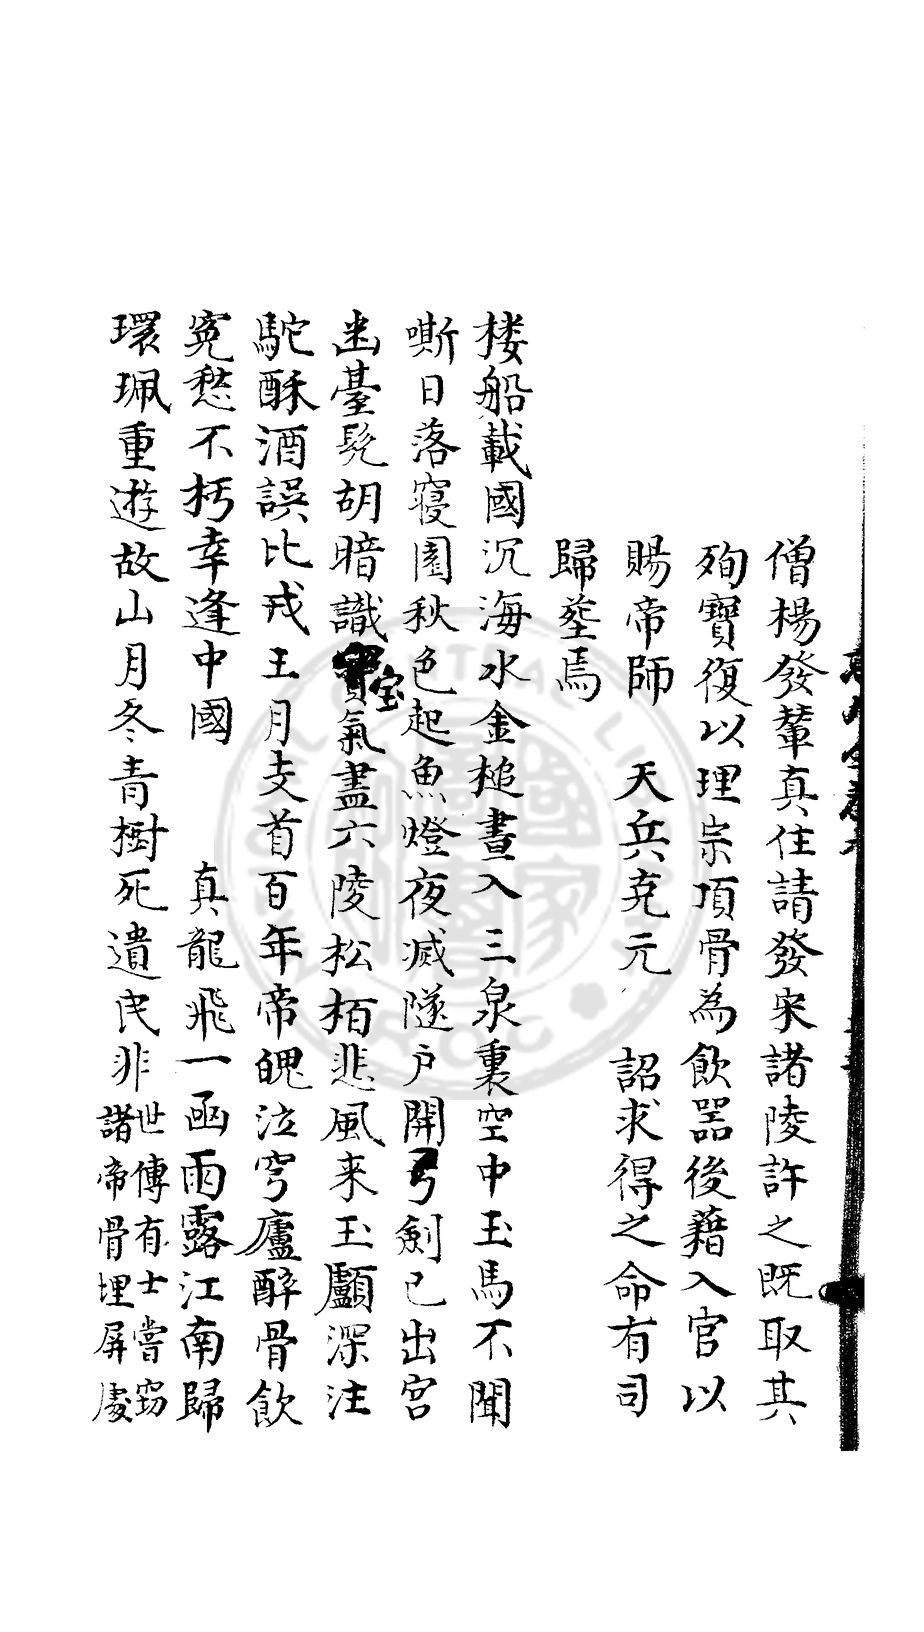 僧楊發輦真住請發宋諸陵許之既取其
殉寶復以理宗頂骨為飲器後藉入官以
賜帝師　天兵克元　詔求得之命有司
歸塟焉
楼船載國沉海水金槌晝入三泉裏空中玉馬不聞
嘶日落寝園秋色起魚燈夜滅隧户開弓劍已出宮
幽臺髠胡暗識寶氣盡六陵松栢悲風来玉顱深注
宝
駝酥酒誤比戎王月支首百年帝魄泣穹廬醉骨飲
寃愁不朽幸逢中國　真龍飛一函雨露江南歸
環珮重遊故山月冬青樹死遺民非
世傳有士嘗窃
諸帝骨埋屏處